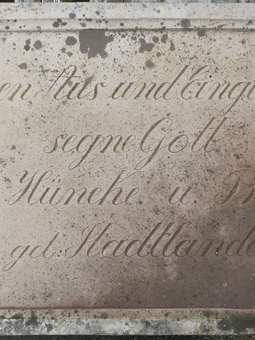 en Aus und Eing
segne Gott
Hüneke u B
geb: Stadtland